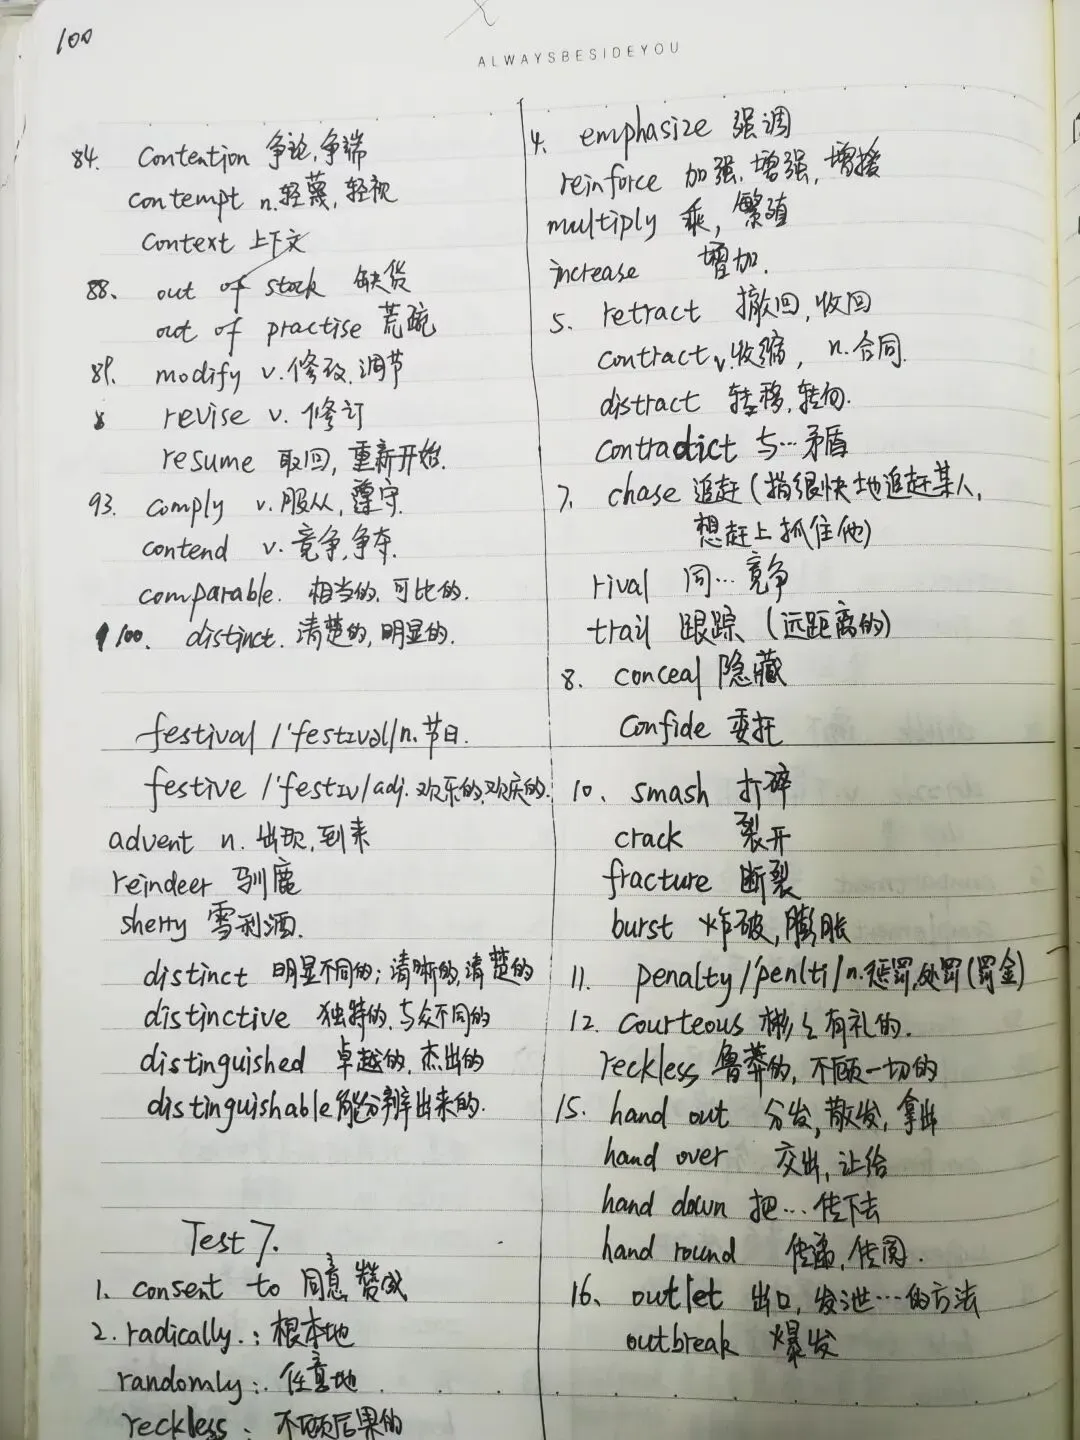 100
ALWAYSBESIDEYOU
84. contention 争论,争端
contempt n.轻蔑,轻视
context 上下文
88、 out of stock 缺货
out of practise 荒疏
89. modify v.修改.调节
revise v. 修订
resume 取回,重新开始.
93. comply v.服从,遵守.
contend v.竞争,争夺.
comparable. 相当的.可比的.
100. distinct.清楚的,明显的.
festival /'festɪvəl/n.节日.
festive /'festɪv/adj.欢乐的,欢庆的.
advent n.出现,到来
reindeer 驯鹿
sherry 雪利酒.
distinct 明显不同的;清晰的,清楚的
distinctive 独特的,与众不同的
distinguished 卓越的,杰出的
distinguishable能分辨出来的.
Test 7.
1. consent to 同意,赞成
2. radically.:根本地
randomly:.任意地
reckless:不顾后果的
4. emphasize 强调
reinforce 加强,增强,增援
multiply 乘,繁殖
increase 增加.
5. retract 撤回,收回
contract v.收缩, n.合同.
distract 转移,转向.
contradict 与…矛盾
7、 chase 追赶(指很快地追赶某人,
想赶上抓住他)
rival 同…竞争
trail 跟踪 (远距离的)
8. conceal 隐藏
confide 委托
10、 smash 打碎
crack 裂开
fracture 断裂
burst 炸破,膨胀
11. penalty/'penlti/n.惩罚,处罚(罚金)
12. courteous 彬彬有礼的.
reckless 鲁莽的,不顾一切的
15. hand out 分发,散发,拿出
hand over 交出,让给
hand down 把…传下去
hand round 传递,传阅.
16、 outlet 出口,发泄…的方法
outbreak 爆发